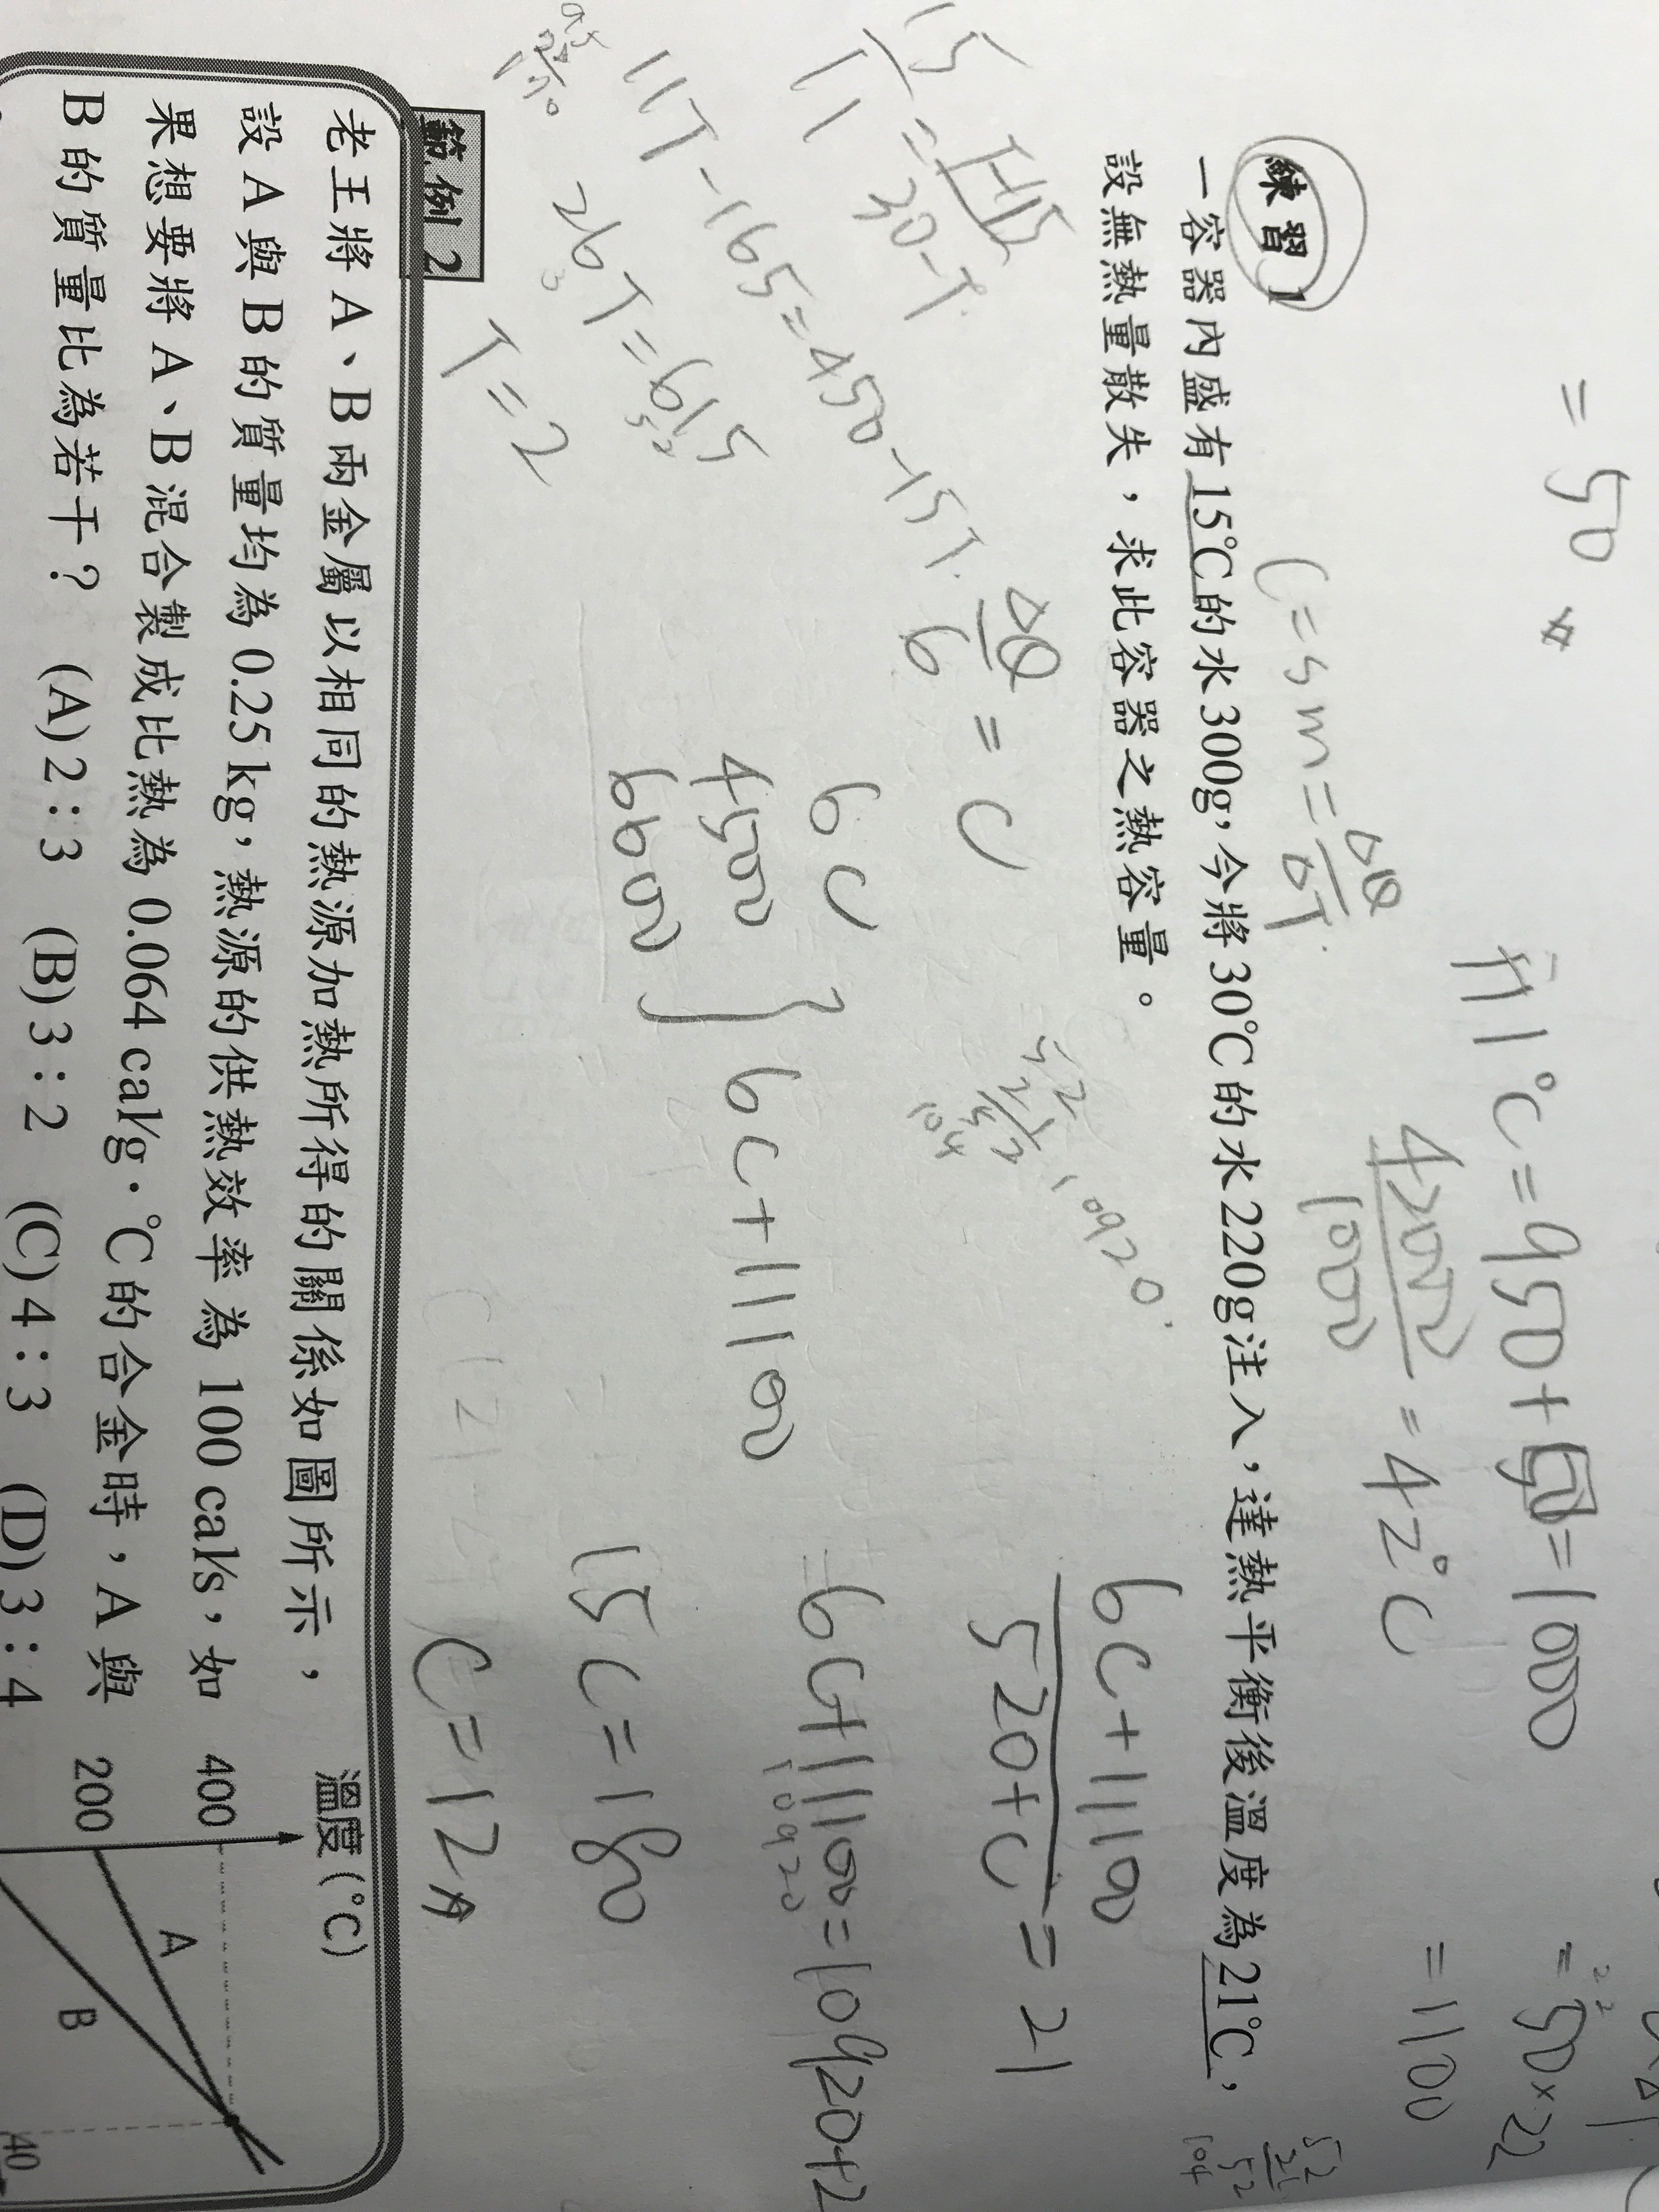 = 50
升1℃=950+50=1000
42000
1000
=42℃
=50×22
=1100
練習 1
C=sm=ΔQ
ΔT
一容器內盛有15℃的水300g,今將30℃的水220g注入,達熱平衡後溫度為21℃,
設無熱量散失,求此容器之熱容量。
15
11
=T-15
30-T
11T-165=450-15T
26T=615
T=2
ΔQ
6
=C
6C
4500
6600
6C+11100
52
21
52
104
10920
6C+11100
520+C
=21
=6C+11100=10920+2
10920
15C=180
C=12
52
21
52
104
範例 2
老王將 A、B 兩金屬以相同的熱源加熱所得的關係如圖所示,
設 A 與 B 的質量均為 0.25 kg,熱源的供熱效率為 100 cal/s,如
果想要將 A、B 混合製成比熱為 0.064 cal/g·℃ 的合金時,A 與
B 的質量比為若干? (A) 2:3 (B) 3:2 (C) 4:3 (D) 3:4
溫度(℃)
400
200
A
B
40